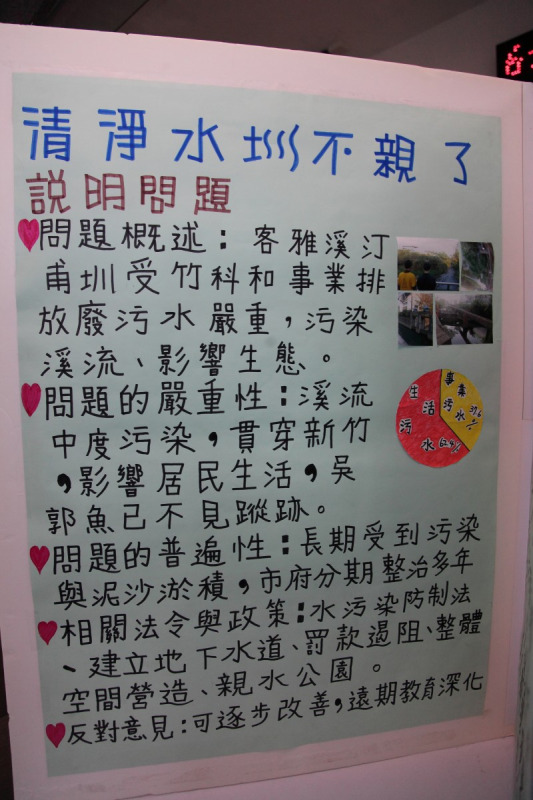 清淨水圳不親了
説明問題
問題概述：客雅溪汀
甫圳受竹科和事業排
放廢污水嚴重，污染
溪流、影響生態。
事業
污水
生活
污水
問題的嚴重性：溪流
中度污染，貫穿新竹
，影響居民生活，吳
郭魚已不見蹤跡。
問題的普遍性：長期受到污染
與泥沙淤積，市府分期整治多年
相關法令與政策：水污染防制法
、建立地下水道、罰款過阻、整體
空間營造、親水公園。
反對意見：可逐步改善，遠期教育深化